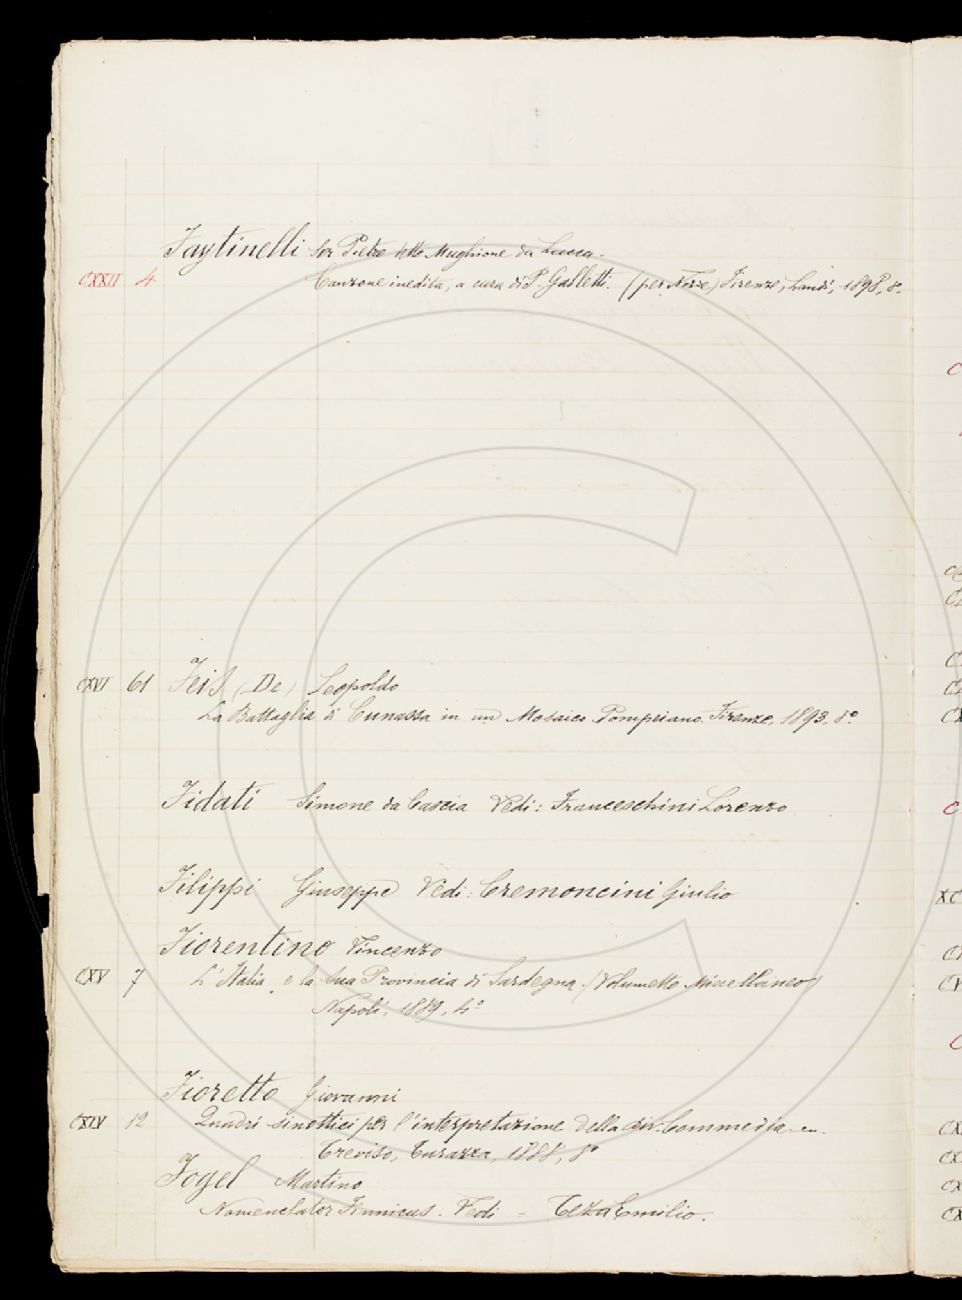 Faytinelli Ser Pietro detto Mughione da Lucca.
CXXII 4 Canzone inedita, a cura di P. Galletti. (per Nozze) Firenze, Landi, 1898, 8°.
CXVI 61 Feis (De) Leopoldo
La Battaglia di Cunassa in un Mosaico Pompeiano. Firenze, 1893, 8°
Fidati Simone da Cascia Vedi: Franceschini Lorenzo
Filippi Giuseppe Vedi: Cremoncini Giulio
Fiorentino Vincenzo
CXV 7 L'Italia e la sua Provincia di Sardegna. (Volumetto Miscellaneo)
Napoli, 1889, 4°
Fioretto Giovanni
CXLV 12 Quadri sinottici per l'interpretazione della div. Commedia
Treviso, Turazza, 1888, 8°
Fogel Martino
Nomenclator Finnicus. Vedi = Teza Emilio.